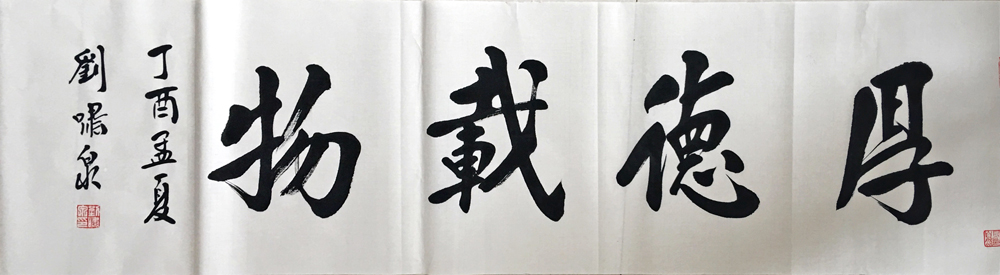 厚德載物
丁酉孟夏
劉啸泉